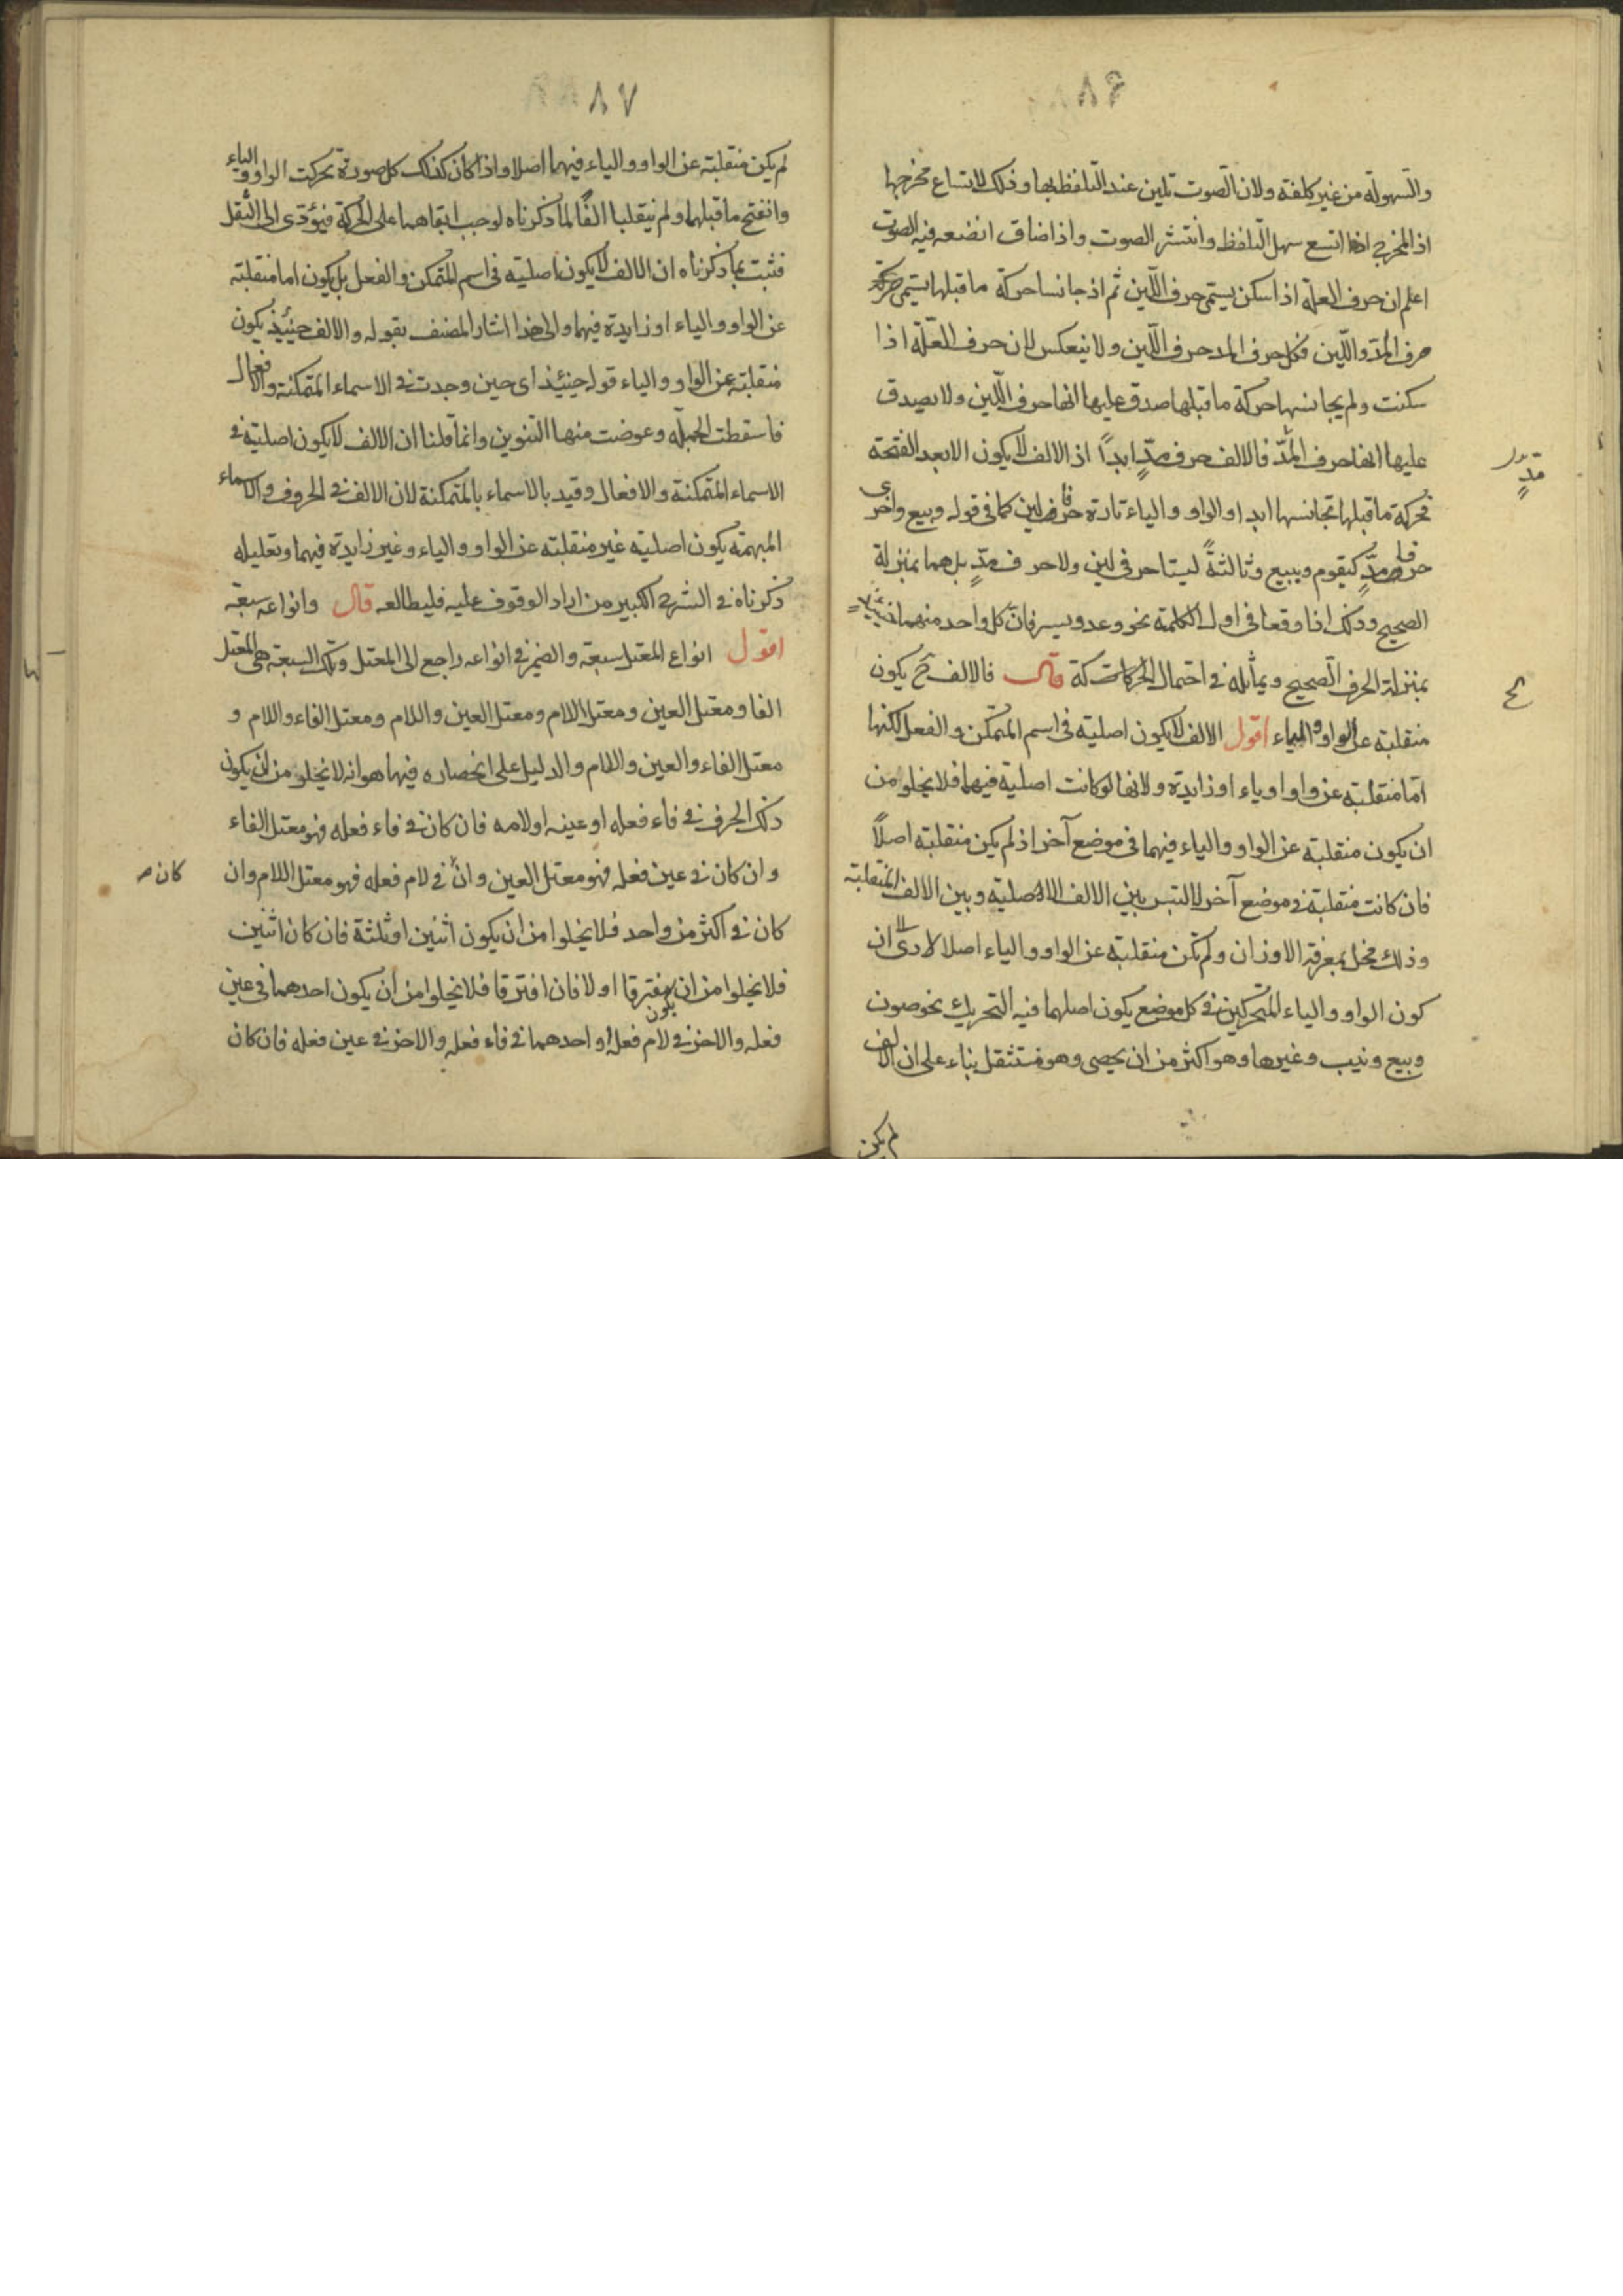 ٨٦
والسهولة من غير كلفة ولان الصوت تلين عند التلفظ بها وذلك لاتساع مخرجها
اذ المخرج اذا اتسع سهل التلفظ وانتشر الصوت واذا ضاق انضعه فيه الصوت
اعلم ان حرف العلة اذا سكن يسمى حرف اللين ثم اذ جانسا حركة ما قبلها يسمى
حرف المد واللين فكل حرف المد حرف اللين ولا ينعكس لان حرف العلة اذا
سكنت ولم يجانسها حركة ما قبلها صدق عليها انها حرف اللين ولا يصدق
عليها انها حرف المدّ فالالف حرف مدٍّ ابداً اذ الالف لا يكون الا بعد الفتحة
مدٍّ
فحركة ما قبلها تجانسها ابدا والواو والياء تارة حرفا لين كما في قوله وبيع واخرى
حرفا مدٍّ كيقوم ويبيع وثالثةً ليستا حرفى لين ولا حرف مدٍّ بل هما بمنزلة
الصحيح وذلك اذا وقعا فى اول الكلمة نحو وعد ويسر فان كل واحد منهما
بمنزلة الحرف الصحيح ويماثله فى احتمال الحركات قال فالالف ح يكون
ح
منقلبة عن الواو والياء اقول الالف لا يكون اصلية فى اسم المتمكن والفعل لكنها
امّا منقلبة عن واو او ياء او زايدة ولانها لو كانت اصلية فيهما فلا يخلوا من
ان يكون منقلبة عن الواو والياء فيهما فى موضع آخر اذ لم يكن منقلبة اصلاً
فان كانت منقلبة فى موضع آخر لالتبس بين الالف الاصلية وبين الالف المنقلبة
وذلك مخل بمعرفة الاوزان ولم تكن منقلبة عن الواو والياء اصلا لادى الا ان
كون الواو والياء المتحركين فى كل موضع يكون اصلهما فيه التحريك نحو صون
وبيع ونيب وغيرها وهو اكثر من ان يحصى وهو مستثقل بناء على ان الالف
لم يكن
٨٧
لم يكن منقلبة عن الواو والياء فيهما اصلا واذا كان كذلك كل صورة تحركت الواو والياء
وانفتح ما قبلهما ولم ينقلبا الفاً لما ذكرناه لوجب ابقاهما على الحركة فيؤدى الى الثقل
فثبت بما ذكرناه ان الالف لا يكون اصلية فى اسم المتمكن والفعل بل يكون اما منقلبة
عن الواو والياء او زايدة فيهما والى هذا اشار المصنف بقوله والالف حينئذ يكون
منقلبة عن الواو والياء قوله حينئذ اى حين وجدت فى الاسماء المتمكنة والافعال
فاسقطت الجملة وعوضت منها التنوين وانما قلنا ان الالف لا يكون اصلية فى
الاسماء المتمكنة والافعال وقيد بالاسماء بالمتمكنة لان الالف فى الحروف والاسماء
المبهمة يكون اصلية غير منقلبة عن الواو والياء وغير زايدة فيهما وتعليله
ذكرناه فى الشرح الكبير من اراد الوقوف عليه فليطالعه قال وانواعه سبعة
اقول انواع المعتل سبعة والضمير فى انواعه راجع الى المعتل وتلك السبعة هى المعتل
الفا ومعتل العين ومعتل اللام ومعتل العين واللام ومعتل الفاء واللام و
معتل الفاء والعين واللام والدليل على انحصاره فيها هو انه لا يخلو من ان يكون
ذلك الحرف فى فاء فعله او عينه او لامه فان كان فى فاء فعله فهو معتل الفاء
وان كان فى عين فعله فهو معتل العين وان فى لام فعله فهو معتل اللام وان
كان ص
كان فى اكثر من واحد فلا يخلوا من ان يكون اثنين او ثلثة فان كان اثنين
فلا يخلوا من ان يكون مفترقا او لا فان افترقا فلا يخلوا من ان يكون احدهما فى عين
فعله والاخر فى لام فعله او احدهما فى فاء فعله والاخر فى عين فعله فان كان